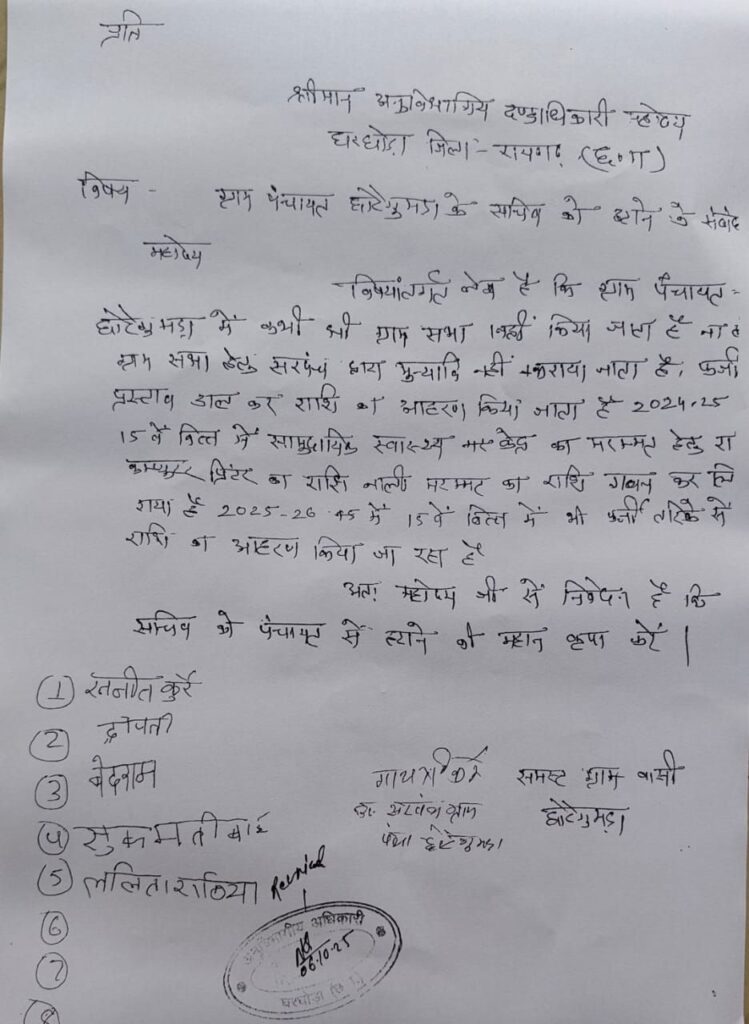 प्रति
श्रीमान अनुविभागिय दण्डाधिकारी महोदय
घरघोड़ा जिला - रायगढ़ (छ.ग)
विषय - ग्राम पंचायत छोटेगुमड़ा के सचिव को हटाने के संबंध
महोदय
विषयांतर्गत लेख है कि ग्राम पंचायत -
छोटेगुमड़ा में कभी भी ग्राम सभा नहीं किया जाता है ना
ग्राम सभा हेतु सरपंच द्वारा मुन्यादि नहीं कराया जाता है, फर्जी
प्रस्ताव डाल कर राशि का आहरण किया जाता है 2024-25
15 वें वित्त में सामुदायिक स्वास्थ्य केंद्र का मरम्मत हेतु रा
प्रिंटर का राशि नाली मरम्मट का राशि गबन कर लि
गया है 2025-26 में 15 वें वित्त में भी फर्जी तरिके से
राशि का आहरण किया जा रहा है
अतः महोदय जी से निवेदन है कि
सचिव को पंचायत से हटाने की महान कृपा करें |
① रनजीत कुर्रे
② द्रोपती
③ बेदराम
④ सुकमती बाई
⑤ ललिता राठिया
⑥
⑦
⑧
गायत्री समस्त ग्राम वासी
छोटेगुमड़ा
ग्राम
छोटेगुमड़ा
Received
अनुविभागीय अधिकारी
06.10.25
घरघोड़ा (छ.ग.)